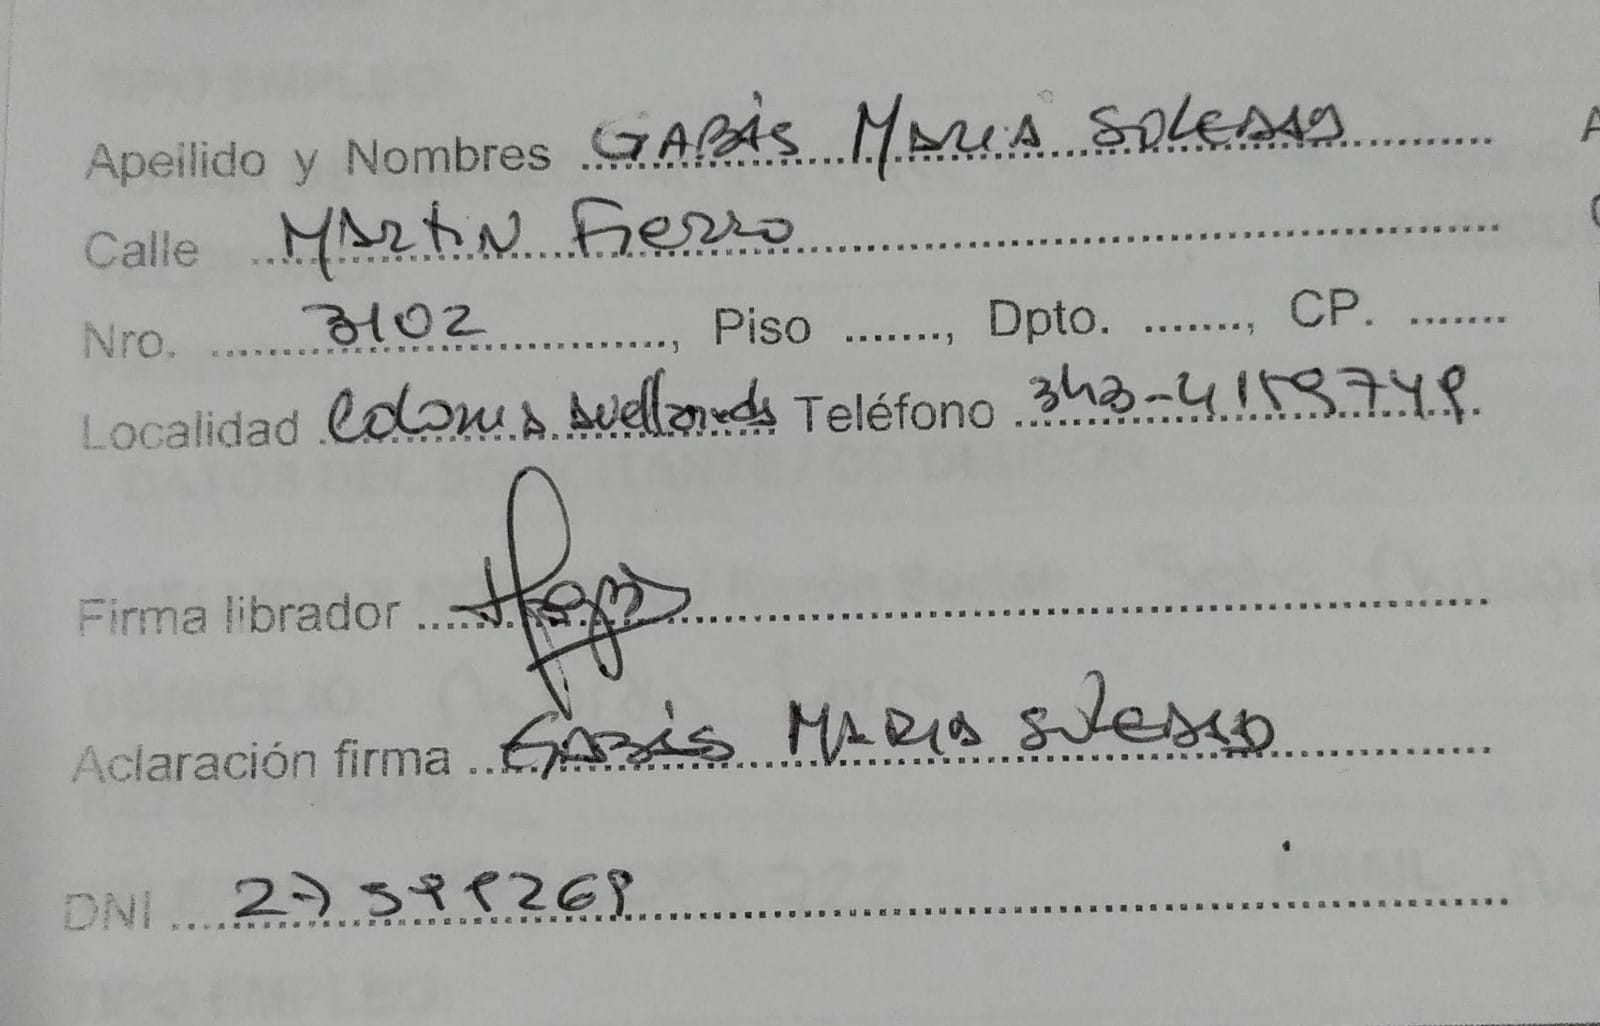 Apellido y Nombres GABÁS MARIA SOLEDAD
Calle MARTIN FIERRO
Nro. 3102, Piso ......., Dpto. ......., CP. .......
Localidad Colonia Avellaneda Teléfono 343-4159749
Firma librador
Aclaración firma GABÁS MARIA SOLEDAD
DNI 27599269